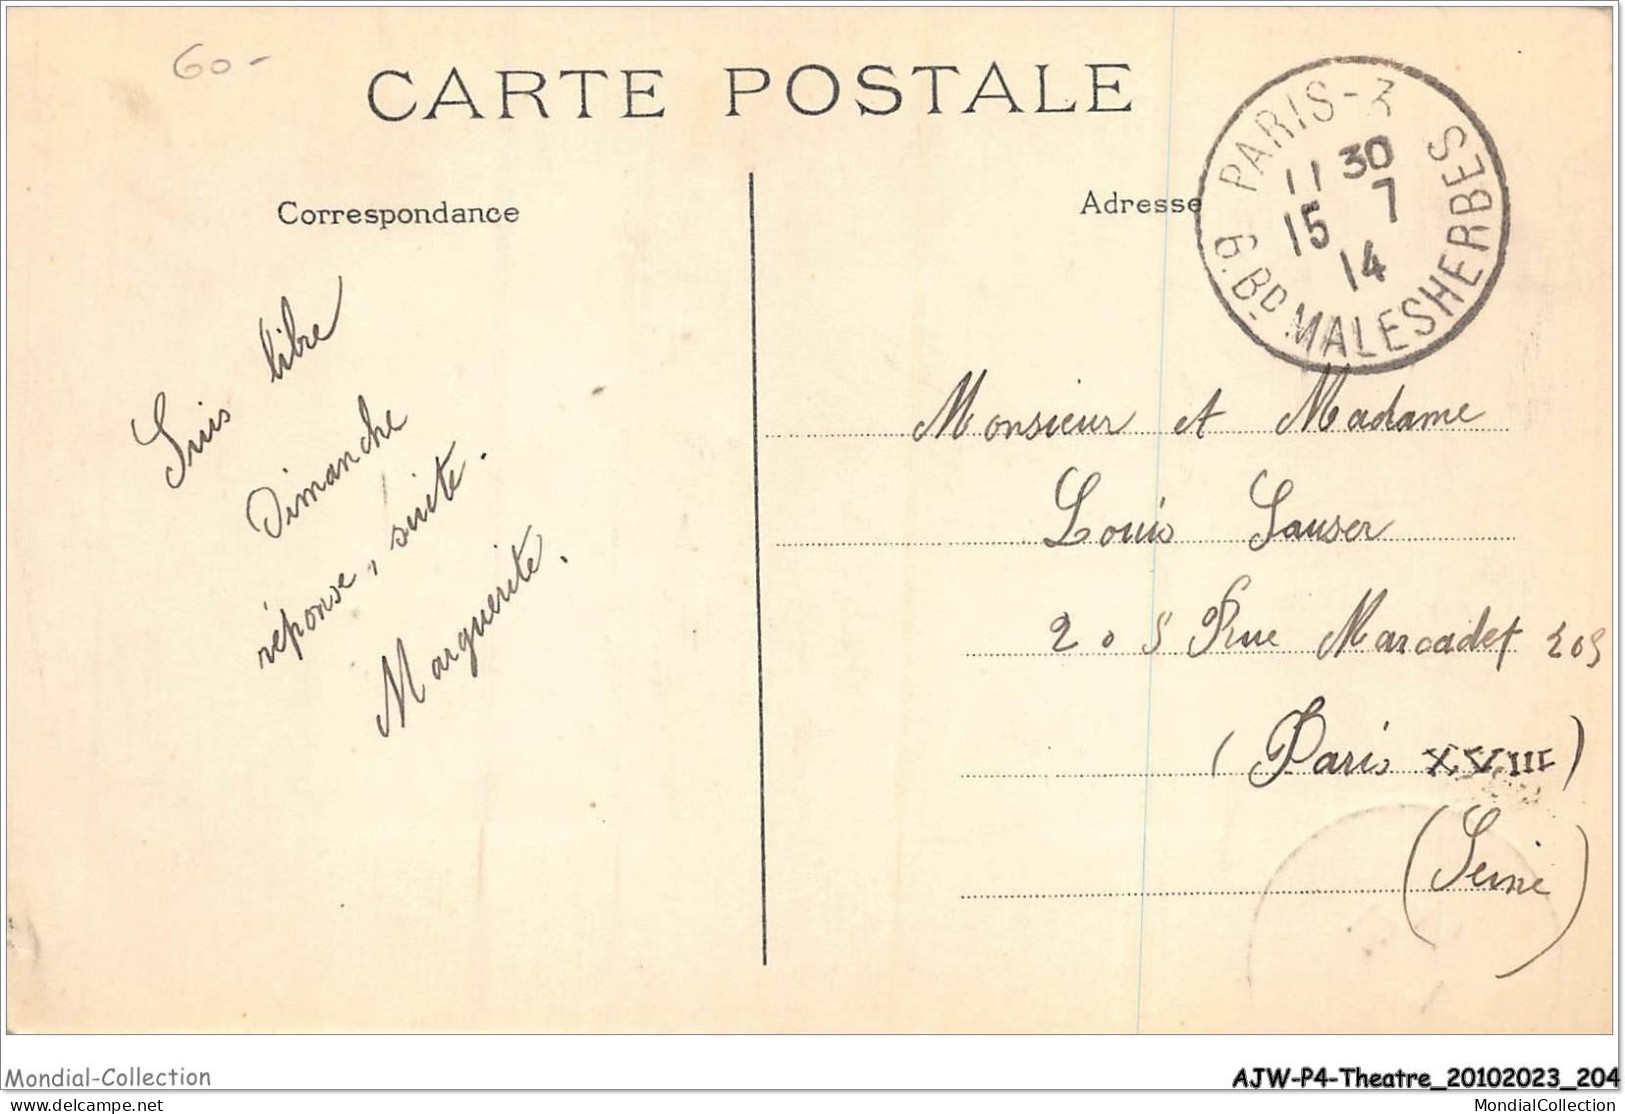 60-
CARTE POSTALE
Correspondance
Adresse
PARIS-3
11 30
15 7
14
6. BD MALESHERBES
Suis libre
Dimanche
réponse, suite.
Marguerite.
Monsieur et Madame
Louis Sauser
205 Rue Marcadet 205
(Paris XVIII)
(Seine)
Mondial-Collection
AJW-P4-Theatre_20102023_204
delcampe.net
MondialCollection